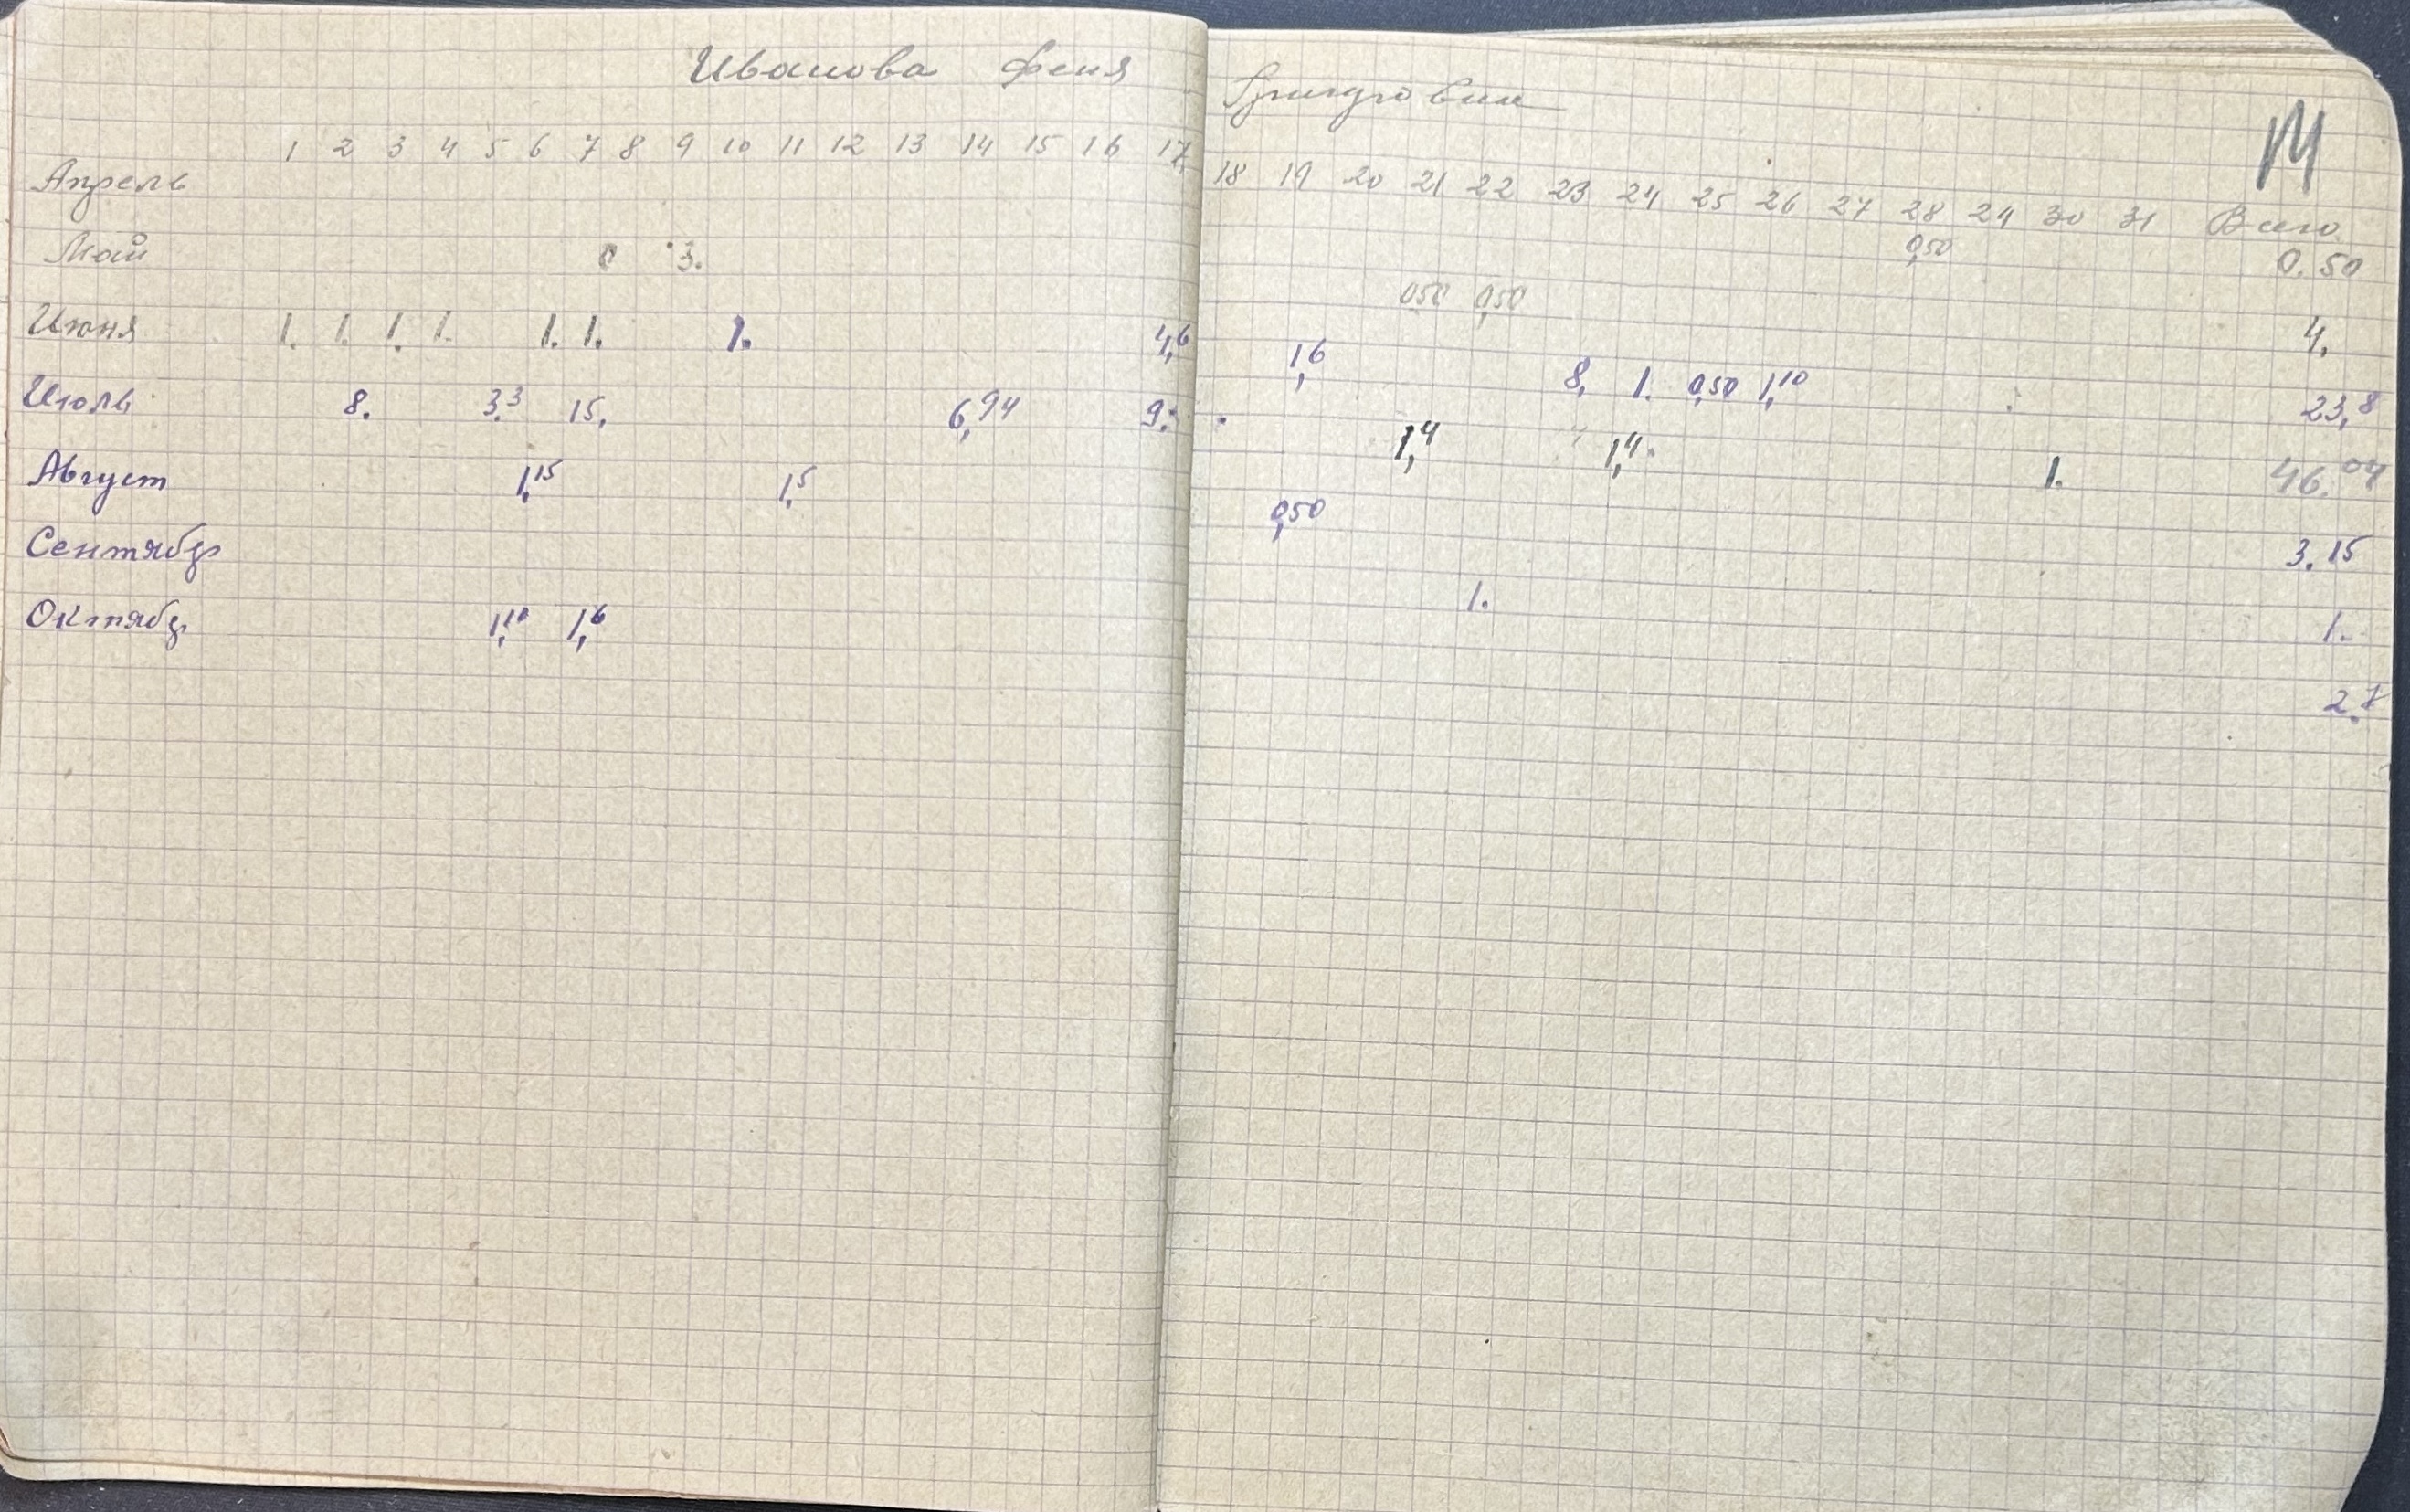 Иванова Феня
М
1 2 3 4 5 6 7 8 9 10 11 12 13 14 15 16 17 18 19 20 21 22 23 24 25 26 27 28 29 30 31 Всего
Апрель 0,50 0.50
Май 3. 0,50 0,50 4.
Июня 1. 1. 1. 1. 1. 1. 1. 4,6 1,6 8, 1. 0,50 1,10 23,8
Июль 8. 3.3 15, 6,94 9. 1,4 1,4 1. 46.04
Август 1,15 1,5 0,50 3.15
Сентябр 1. 1.
Октябр 1,10 1,6